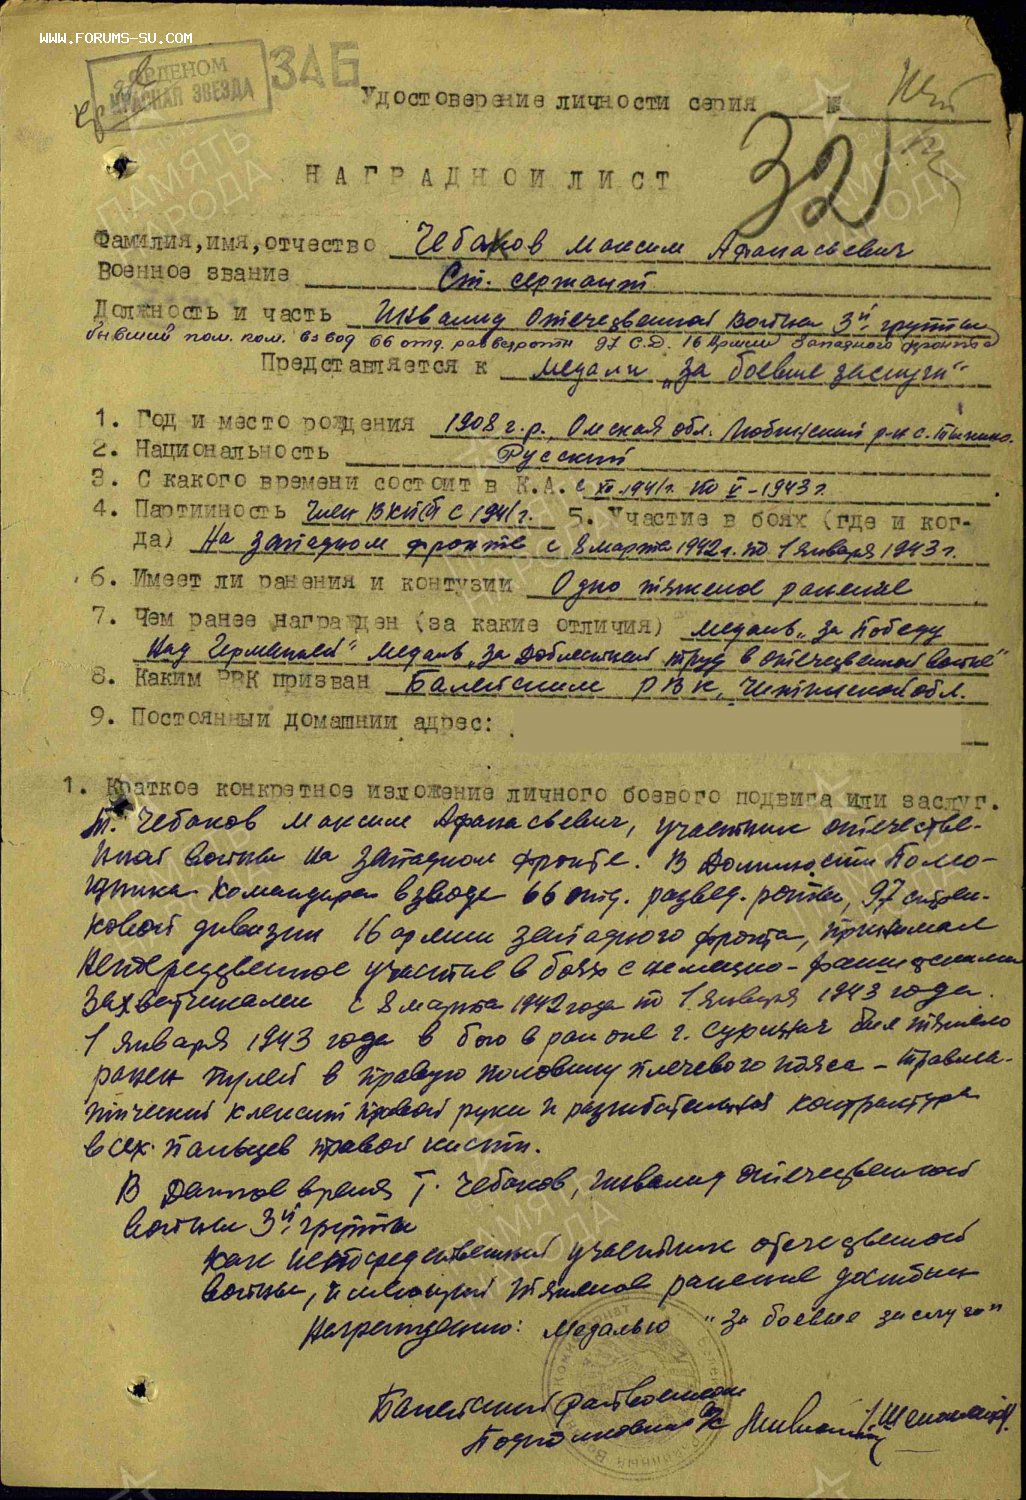 WWW.FORUMS-SU.COM
ОРДЕНОМ
КРАСНАЯ ЗВЕЗДА
ЗАБ
Удостоверение личности серия № 
32
НАГРАДНОЙ ЛИСТ
Фамилия, имя, отчество Чебаков Максим Афанасьевич
Военное звание Ст. сержант
Должность и часть Инвалид Отечественной Войны 3й группы
бывший пом. ком. взвод 66 отд. разведроты 97 С.Д. 16 Армии Западного фронта
Представляется к медали "За боевые заслуги"
1. Год и место рождения 1908 г.р., Омская обл. Любинский р-н с.
2. Национальность Русский
3. С какого времени состоит в К.А. с XI-1941г. по V-1943г.
4. Партийность Член ВКП(б) с 1941г. 5. Участие в боях (где и ког-
да) На западном фронте с 8 марта 1942г. по 1 января 1943г.
6. Имеет ли ранения и контузии Одно тяжелое ранение
7. Чем ранее награжден (за какие отличия) медаль "За Победу
над Германией" медаль "За доблестный труд в отечественной войне"
8. Каким РВК призван Балейским РВК, Читинской обл.
9. Постоянный домашний адрес:
1. Краткое конкретное изложение личного боевого подвига или заслуг.
Т. Чебаков Максим Афанасьевич, участник отечестве-
нной войны на западном фронте. В должности Помо-
щника командира взвода 66 отд. развед. роты, 97 стрел-
ковой дивизии 16 армии западного фронта, принимал
непосредственное участие в боях с немецко-фашистскими
захватчиками с 8 марта 1942 года по 1 января 1943 года.
1 января 1943 года в бою в районе г. Сухинич был тяжело
ранен пулей в правую половину плечевого пояса - травма-
тический правой руки и разгибательная контрактура
всех пальцев правой кисти.
В данное время т. Чебаков, инвалид отечественной
войны 3й группы
Как непосредственный участник отечественной
войны, имеющий тяжелое ранение достоин
награждению: Медалью "За боевые заслуги"
Балейский райвоенком
Подполковник
ПАМЯТЬ
НАРОДА